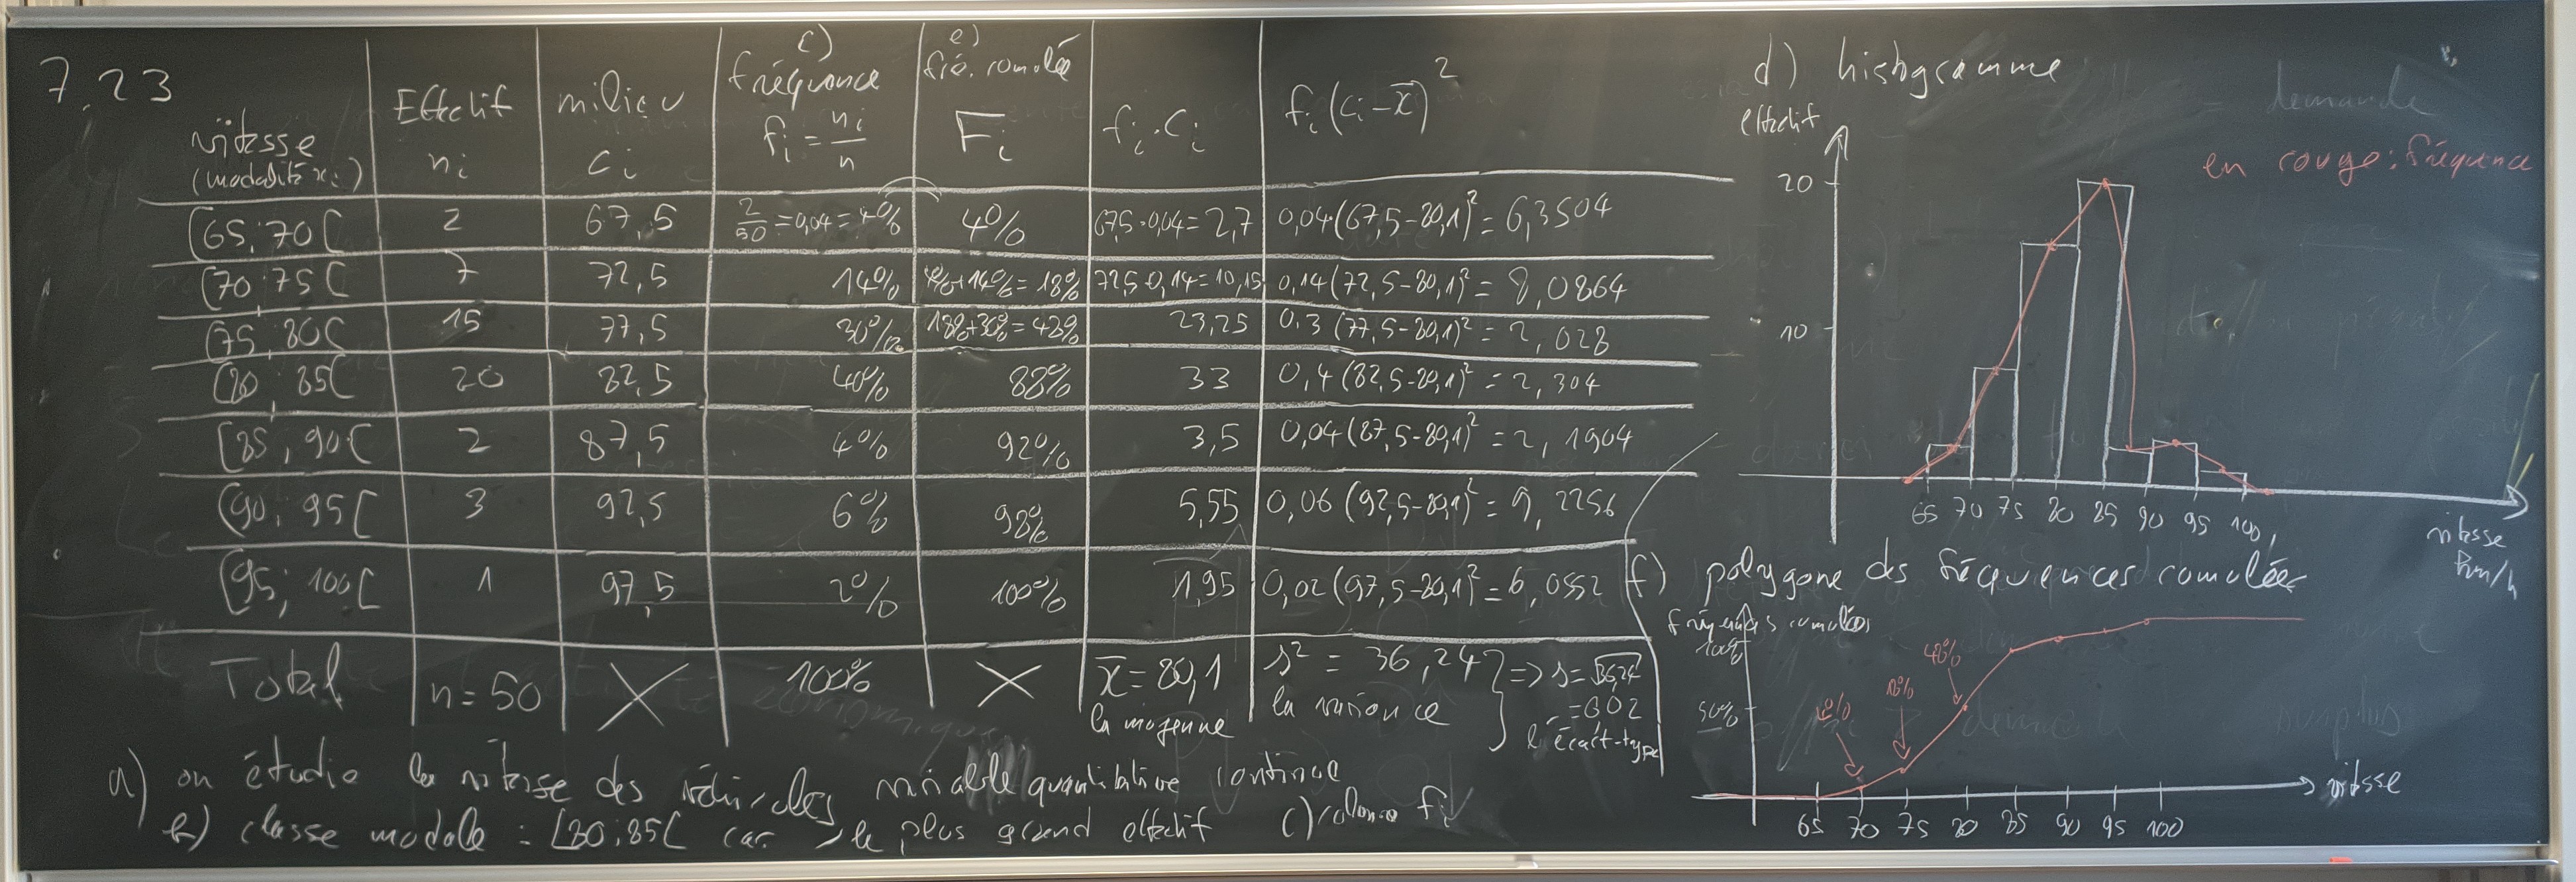 7.23
vitesse (modalité xi) | Effectif ni | milieu ci | c) fréquence fi = ni/n | e) fré. cumulée Fi | fi·ci | fi(ci-x̄)²
[65;70[ | 2 | 67,5 | 2/50 = 0,04 = 4% | 4% | 67,5·0,04 = 2,7 | 0,04(67,5-80,1)² = 6,3504
[70;75[ | 7 | 72,5 | 14% | 4%+14% = 18% | 72,5·0,14 = 10,15 | 0,14(72,5-80,1)² = 8,0864
[75;80[ | 15 | 77,5 | 30% | 18%+30% = 48% | 23,25 | 0,3(77,5-80,1)² = 2,028
[80;85[ | 20 | 82,5 | 40% | 88% | 33 | 0,4(82,5-80,1)² = 2,304
[85;90[ | 2 | 87,5 | 4% | 92% | 3,5 | 0,04(87,5-80,1)² = 2,1904
[90;95[ | 3 | 92,5 | 6% | 98% | 5,55 | 0,06(92,5-80,1)² = 9,2256
[95;100[ | 1 | 97,5 | 2% | 100% | 1,95 | 0,02(97,5-80,1)² = 6,0552
Total | n = 50 | X | 100% | X | x̄ = 80,1 la moyenne | s² = 36,24 la variance } => s = √36,24 = 6,02 l'écart-type
a) on étudie la vitesse des véhicules variable quantitative continue
b) classe modale : [80;85[ car le plus grand effectif
c) colonne fi
d) histogramme
effectif
en rouge : fréquence
20
10
65 70 75 80 85 90 95 100
vitesse
km/h
f) polygone des fréquences cumulées
fréquences cumulées
100%
50%
4%
18%
48%
65 70 75 80 85 90 95 100
vitesse
demande